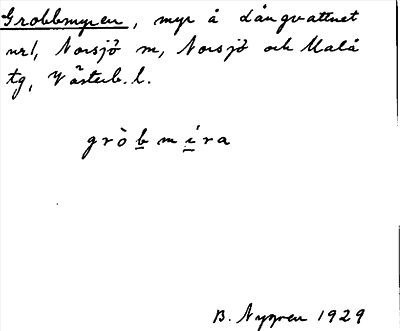 Grobbmyren, myr å Långvattnet
nr1, Norsjö sn, Norsjö och Malå
tg, Västerb. l.
gròb̲mí̲ra
B. Nygren 1929